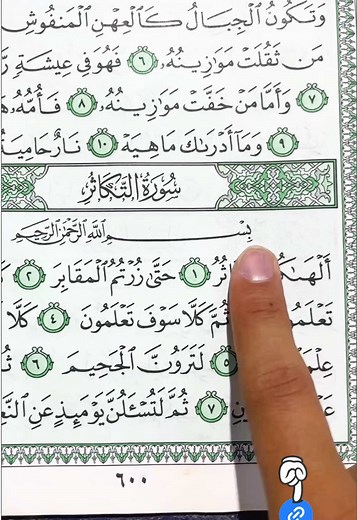 وَتَكُونُ ٱلْجِبَالُ كَٱلْعِهْنِ ٱلْمَنفُوشِ
مَن ثَقُلَتْ مَوَٰزِينُهُۥ ٦ فَهُوَ فِى عِيشَةٍ
٧ وَأَمَّا مَنْ خَفَّتْ مَوَٰزِينُهُۥ ٨ فَأُمُّهُۥ
٩ وَمَآ أَدْرَىٰكَ مَا هِيَهْ ١٠ نَارٌ حَامِيَةٌ
سُورَةُ التَّكَاثُرِ
بِسْمِ ٱللَّهِ ٱلرَّحْمَٰنِ ٱلرَّحِيمِ
١ حَتَّىٰ زُرْتُمُ ٱلْمَقَابِرَ ٢
كَلَّا سَوْفَ تَعْلَمُونَ ٤ كَلَّا
٥ لَتَرَوُنَّ ٱلْجَحِيمَ ٦
٧ ثُمَّ لَتُسْـَٔلُنَّ يَوْمَئِذٍ عَنِ
٦٠٠